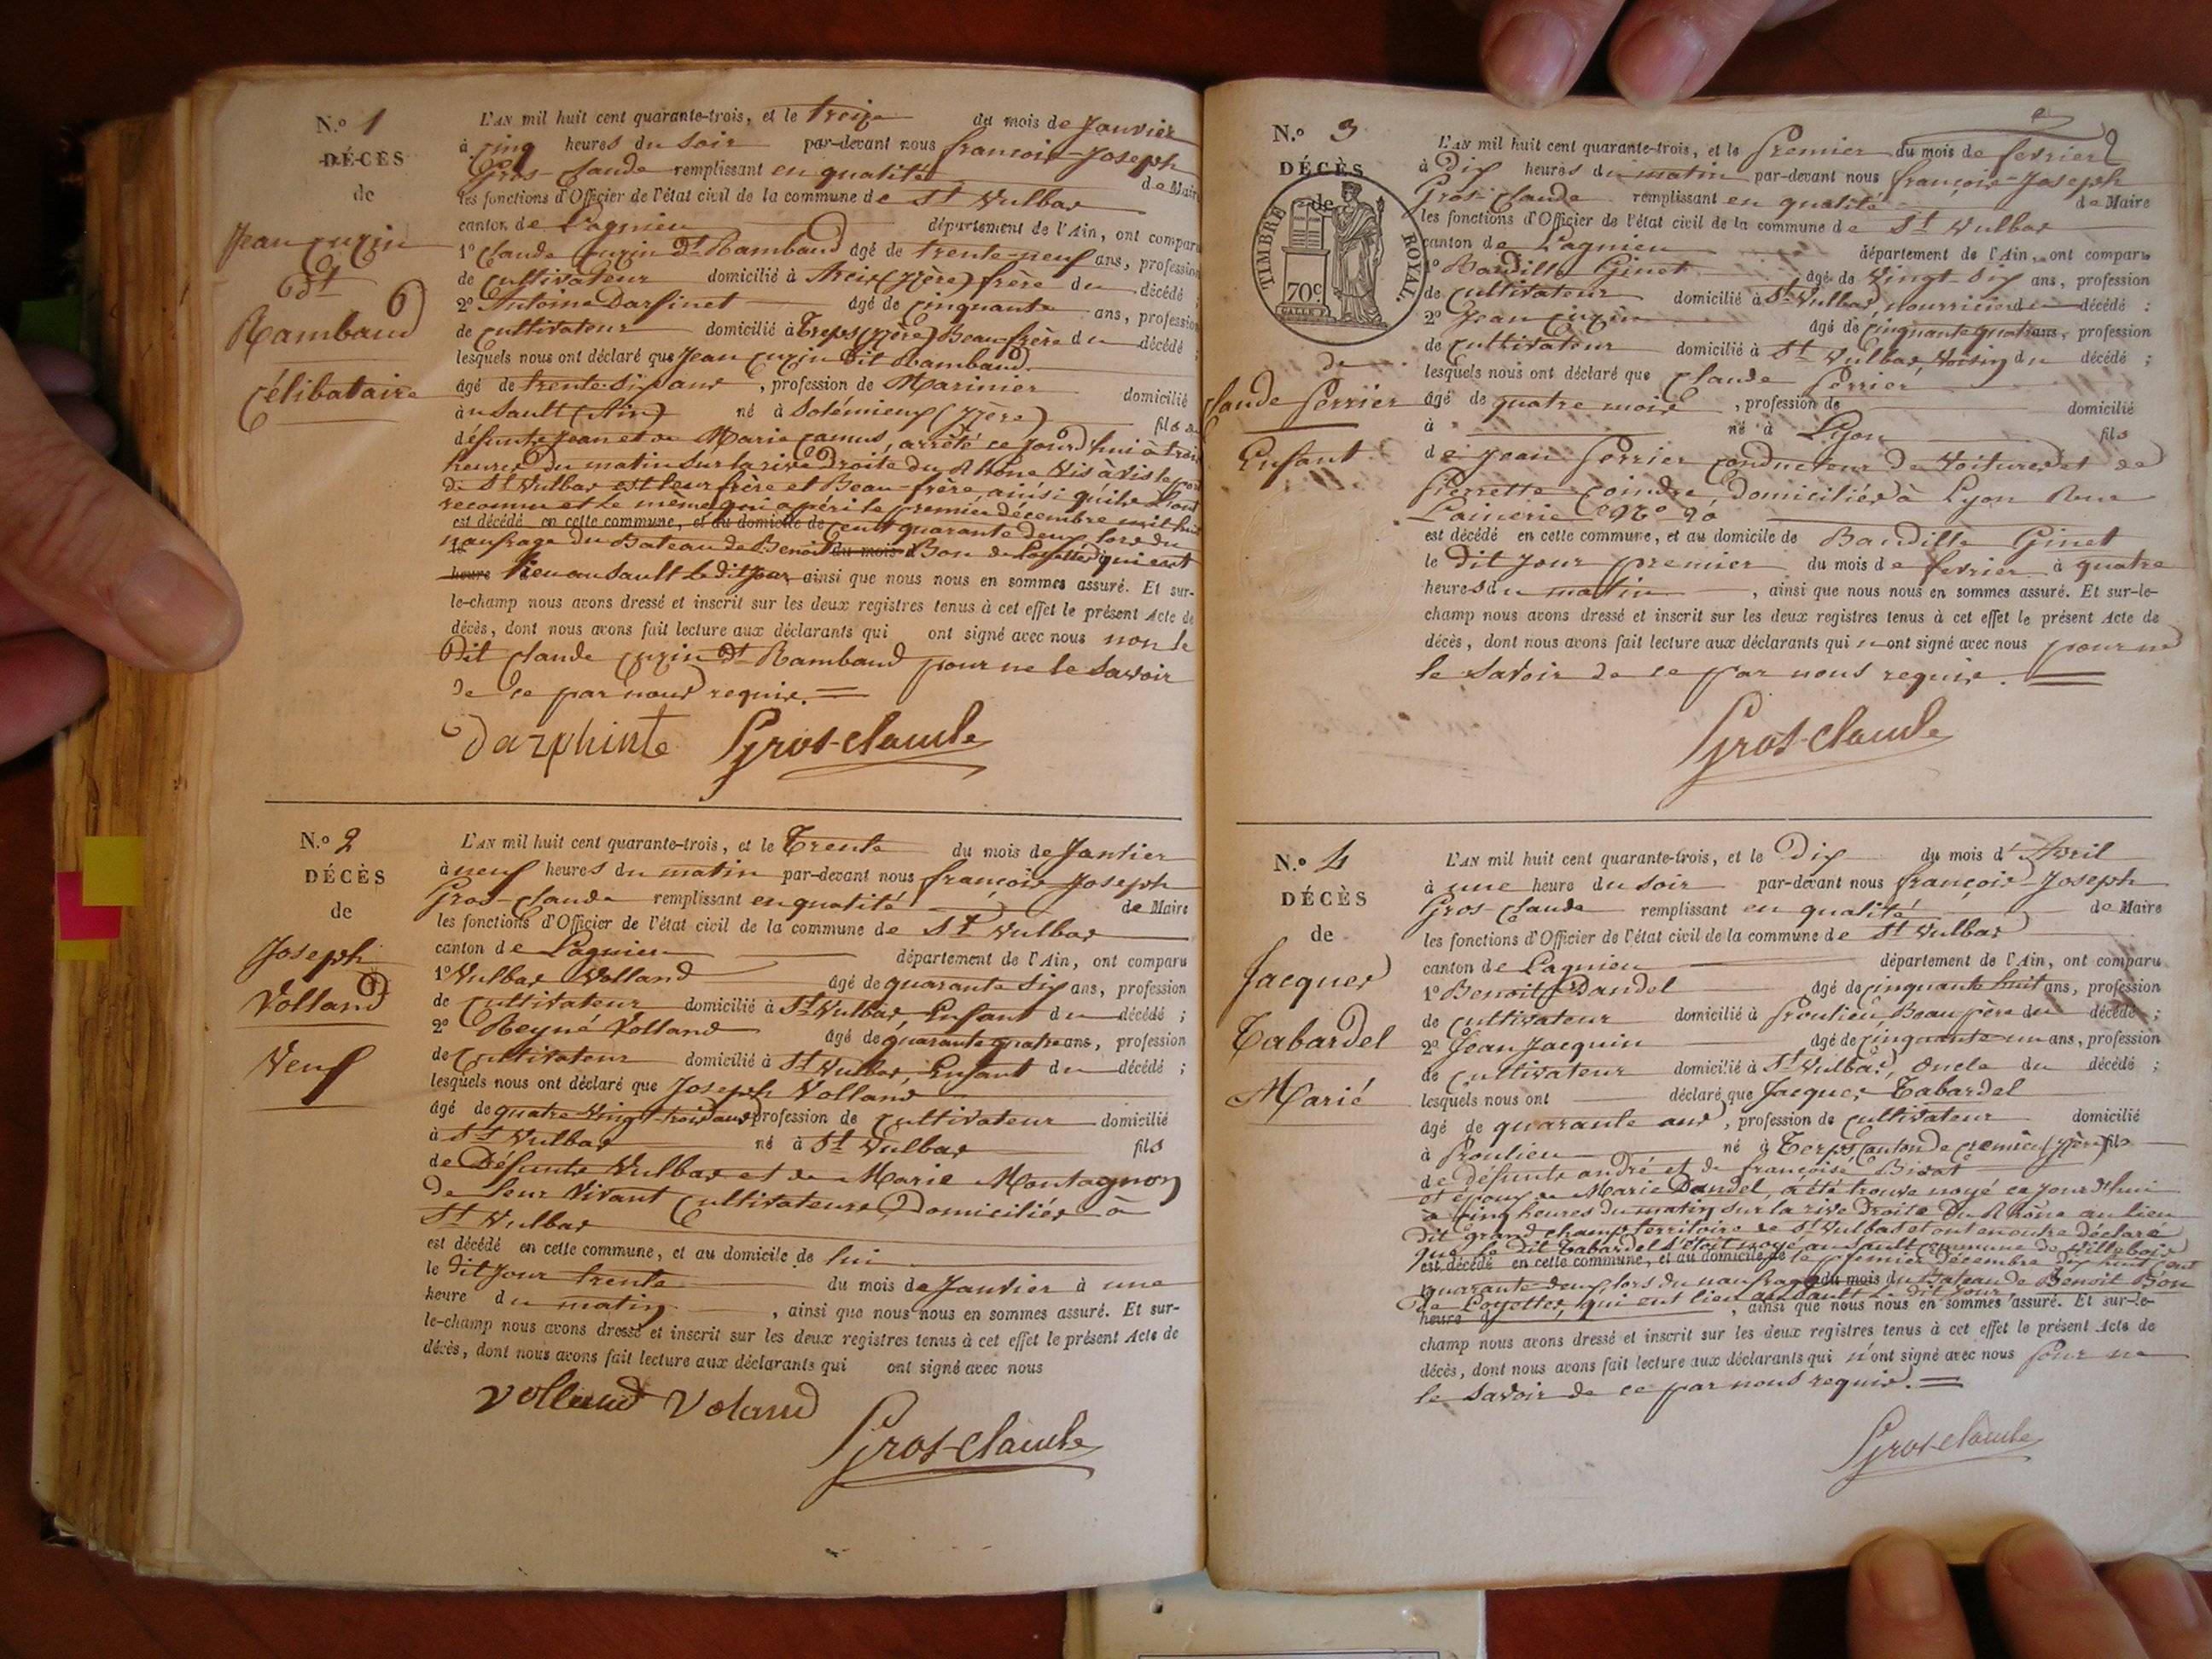 N.º 1
DÉCÈS
de
Jean Cuzin
dt
Rambaud
Célibataire
L'AN mil huit cent quarante-trois, et le treize du mois de Janvier
à cinq heures du soir par-devant nous françois-Joseph
Gros-Claude remplissant en qualité de Maire
les fonctions d'Officier de l'état civil de la commune de St Vulbas
canton de Lagnieu département de l'Ain, ont comparu
1º Claude Cuzin dt Rambaud âgé de trente-neuf ans, profession
de Cultivateur domicilié à (Izère) frère du décédé ;
2º Antoine Darfinet âgé de Cinquante ans, profession
de Cultivateur domicilié à Treps (Izère) Beau-frère du décédé ;
lesquels nous ont déclaré que Jean Cuzin dit Rambaud
âgé de trente-six ans, profession de Marinier domicilié
au Sault (Ain) né à Solémieux (Izère) fils de
défunts Jean et de Marie Camus, arrêté ce jourd'hui à trois
heures du matin sur la rive Droite du Rhône vis à vis le
de St Vulbas est leur frère et Beau-frère, ainsi qu'ils l'ont
reconnu et le même qui a péri le premier décembre mil huit
est décédé en cette commune, et au domicile de cent quarante deux, lors du
naufrage du Bateau de Benoit du mois d Bon de Loyettes, qui eut
heure lieu au Sault le dit jour, ainsi que nous nous en sommes assuré. Et sur-
le-champ nous avons dressé et inscrit sur les deux registres tenus à cet effet le présent Acte de
décès, dont nous avons fait lecture aux déclarants qui ont signé avec nous non le
Dit Claude Cuzin dt Rambaud pour ne le savoir
de ce par nous requis.
Darphinte Gros-Claude
N.º 2
DÉCÈS
de
Joseph
Volland
Veuf
L'AN mil huit cent quarante-trois, et le Trente du mois de Janvier
à neuf heures du matin par-devant nous françois Joseph
Gros-Claude remplissant en qualité de Maire
les fonctions d'Officier de l'état civil de la commune de St Vulbas
canton de Lagnieu département de l'Ain, ont comparu
1º Vulbas Volland âgé de quarante six ans, profession
de Cultivateur domicilié à St Vulbas, Enfant du décédé ;
2º Reyné Volland âgé de quarante quatre ans, profession
de Cultivateur domicilié à St Vulbas, Enfant du décédé ;
lesquels nous ont déclaré que Joseph Volland
âgé de quatre vingt-trois ans profession de Cultivateur domicilié
à St Vulbas né à St Vulbas fils
de Défunts Vulbas et de Marie Montagnon
de leur vivant Cultivateurs, Domiciliés à
St Vulbas
est décédé en cette commune, et au domicile de lui
le dit jour trente du mois de Janvier à une
heure du matin, ainsi que nous nous en sommes assuré. Et sur-
le-champ nous avons dressé et inscrit sur les deux registres tenus à cet effet le présent Acte de
décès, dont nous avons fait lecture aux déclarants qui ont signé avec nous
Volland Voland
Gros-Claude
2
N.º 3
DÉCÈS
de
TIMBRE ROYAL.
70c
de
Claude Perrier
Enfant
L'AN mil huit cent quarante-trois, et le Premier du mois de fevrier
à Dix heures du matin par-devant nous françois-Joseph
Gros-Claude remplissant en qualité de Maire
les fonctions d'Officier de l'état civil de la commune de St Vulbas
canton de Lagnieu département de l'Ain, ont comparu
1º Baudille Ginet âgé de Vingt-Six ans, profession
de Cultivateur domicilié à St Vulbas, nourricier du décédé ;
2º Jean Cuzin âgé de Cinquante quatre ans, profession
de Cultivateur domicilié à St Vulbas, Voisin du décédé ;
lesquels nous ont déclaré que Claude Perrier
âgé de quatre mois, profession de domicilié
à né à Lyon fils
de Jean Perrier Conducteur de Voitures et de
Pierrette Coindre, domiciliés à Lyon Rue
Lainerie Nº 20
est décédé en cette commune, et au domicile de Baudille Ginet
le dit jour premier du mois de fevrier à quatre
heures du matin, ainsi que nous nous en sommes assuré. Et sur-le-
champ nous avons dressé et inscrit sur les deux registres tenus à cet effet le présent Acte de
décès, dont nous avons fait lecture aux déclarants qui n'ont signé avec nous pour ne
le savoir de ce par nous requis.
Gros-Claude
N.º 4
DÉCÈS
de
Jacques
Tabardel
Marié
L'AN mil huit cent quarante-trois, et le Dix du mois d'Avril
à une heure du soir par-devant nous françois-Joseph
Gros-Claude remplissant en qualité de Maire
les fonctions d'Officier de l'état civil de la commune de St Vulbas
canton de Lagnieu département de l'Ain, ont comparu
1º Benoit Dandel âgé de Cinquante huit ans, profession
de Cultivateur domicilié à Proulieu, Beau père du décédé ;
2º Jean Jacquin âgé de Cinquante un ans, profession
de Cultivateur domicilié à St Vulbas, Oncle du décédé ;
lesquels nous ont déclaré que Jacques Tabardel
âgé de quarante ans, profession de Cultivateur domicilié
à Proulieu né à Terps Canton de Cremieu (Izère) fils
de défunts andré et de françoise Bizot
et époux de Marie Dandel, a été trouvé noyé ce jourd'hui
à Cinq heures du matin sur la rive Droite du Rhône au lieu
dit grand champ territoire de St Vulbas et ont en outre déclaré
que le dit Tabardel s'étoit noyé au Sault commune de Villebois
est décédé en cette commune, et au domicile de le premier décembre dix huit cent
quarante-deux, lors du naufrage du mois du Bateau de Benoit Bon
de Loyettes, qui eut lieu au Sault le dit jour,
heure d , ainsi que nous nous en sommes assuré. Et sur-le-
champ nous avons dressé et inscrit sur les deux registres tenus à cet effet le présent Acte de
décès, dont nous avons fait lecture aux déclarants qui n'ont signé avec nous pour ne
le savoir de ce par nous requis.
Gros-Claude